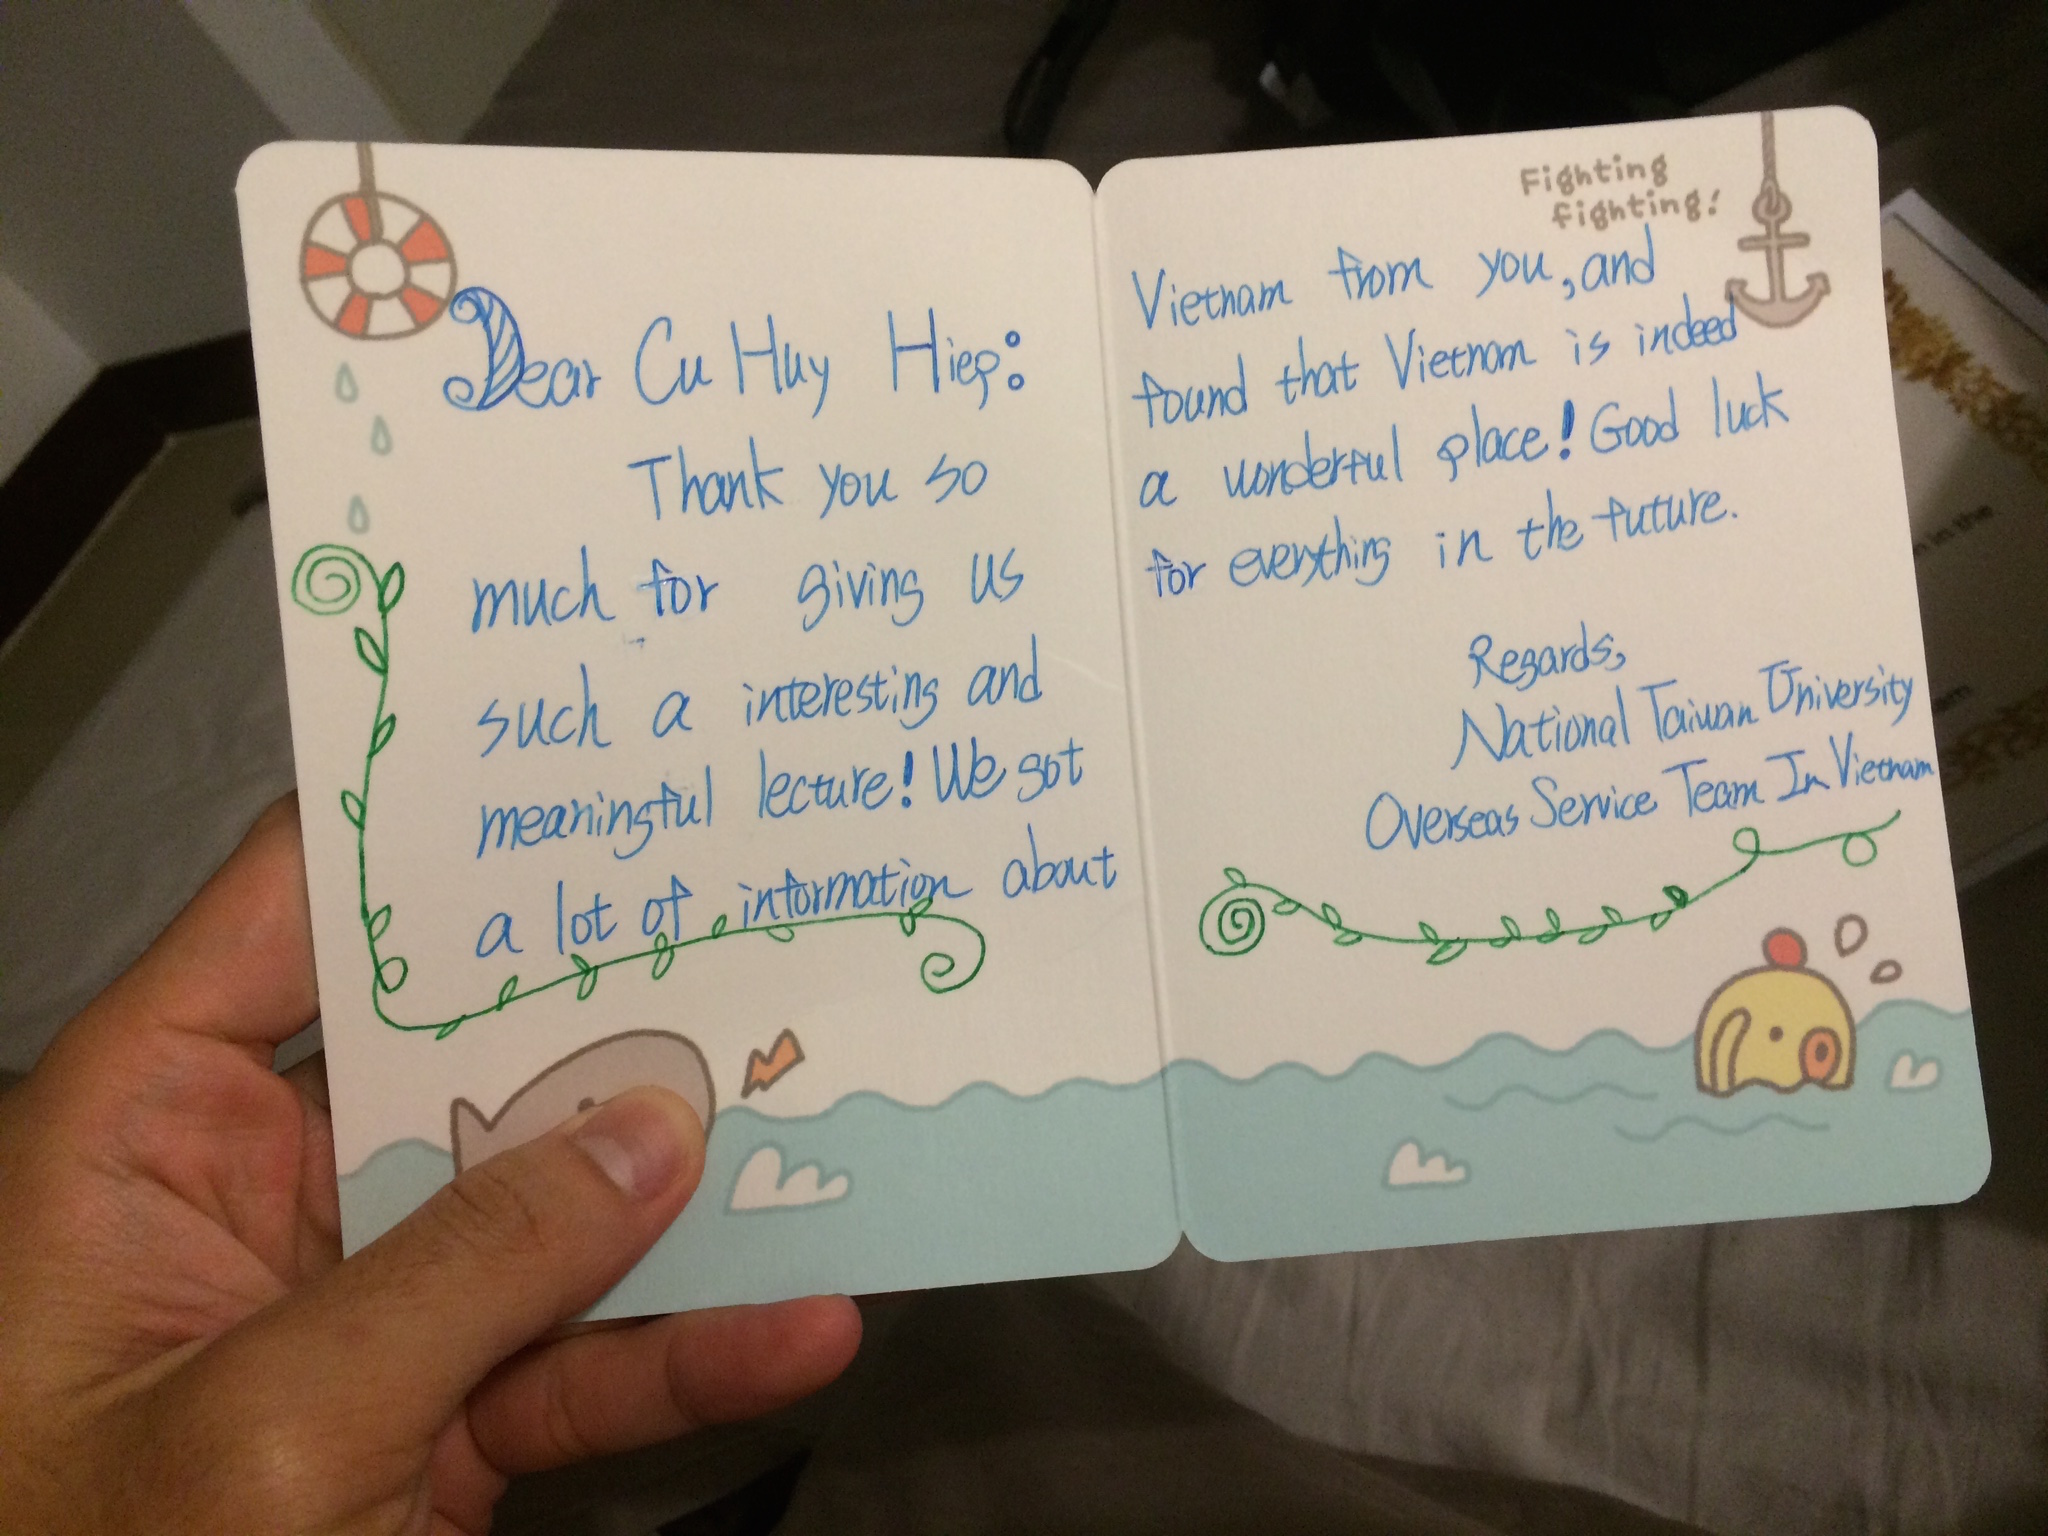 Dear Cu Huy Hiep:
Thank you so
much for giving us
such a interesting and
meaningful lecture! We got
a lot of information about
Fighting
fighting!
Vietnam from you, and
found that Vietnam is indeed
a wonderful place! Good luck
for everything in the future.
Regards,
National Taiwan University
Overseas Service Team In Vietnam
n in the